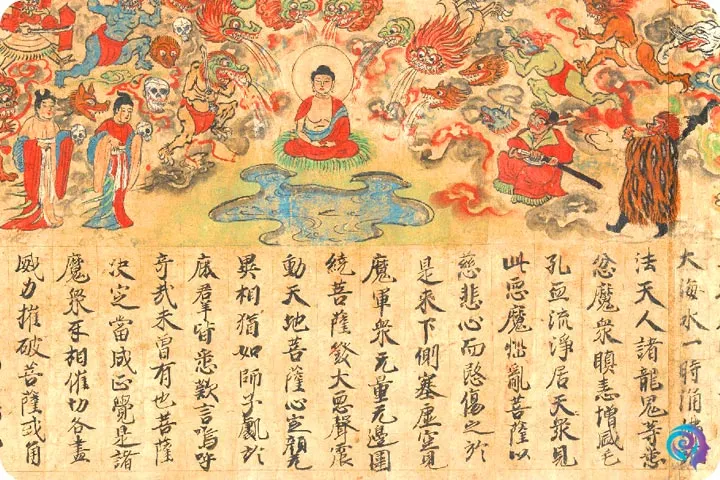 大海水一時涌
法天人諸龍鬼等悉
忿魔衆瞋恚增盛毛
孔血流淨居天衆見
此惡魔惱亂菩薩以
慈悲心而愍傷之於
是來下側塞虛空見
魔軍衆无量无邊圍
繞菩薩發大惡聲震
動天地菩薩心定顏无
異相猶如師子處於
鹿群皆悉歎言嗚呼
奇哉未曾有也菩薩
決定當成正覺是諸
魔衆互相催切各盡
威力摧破菩薩或角